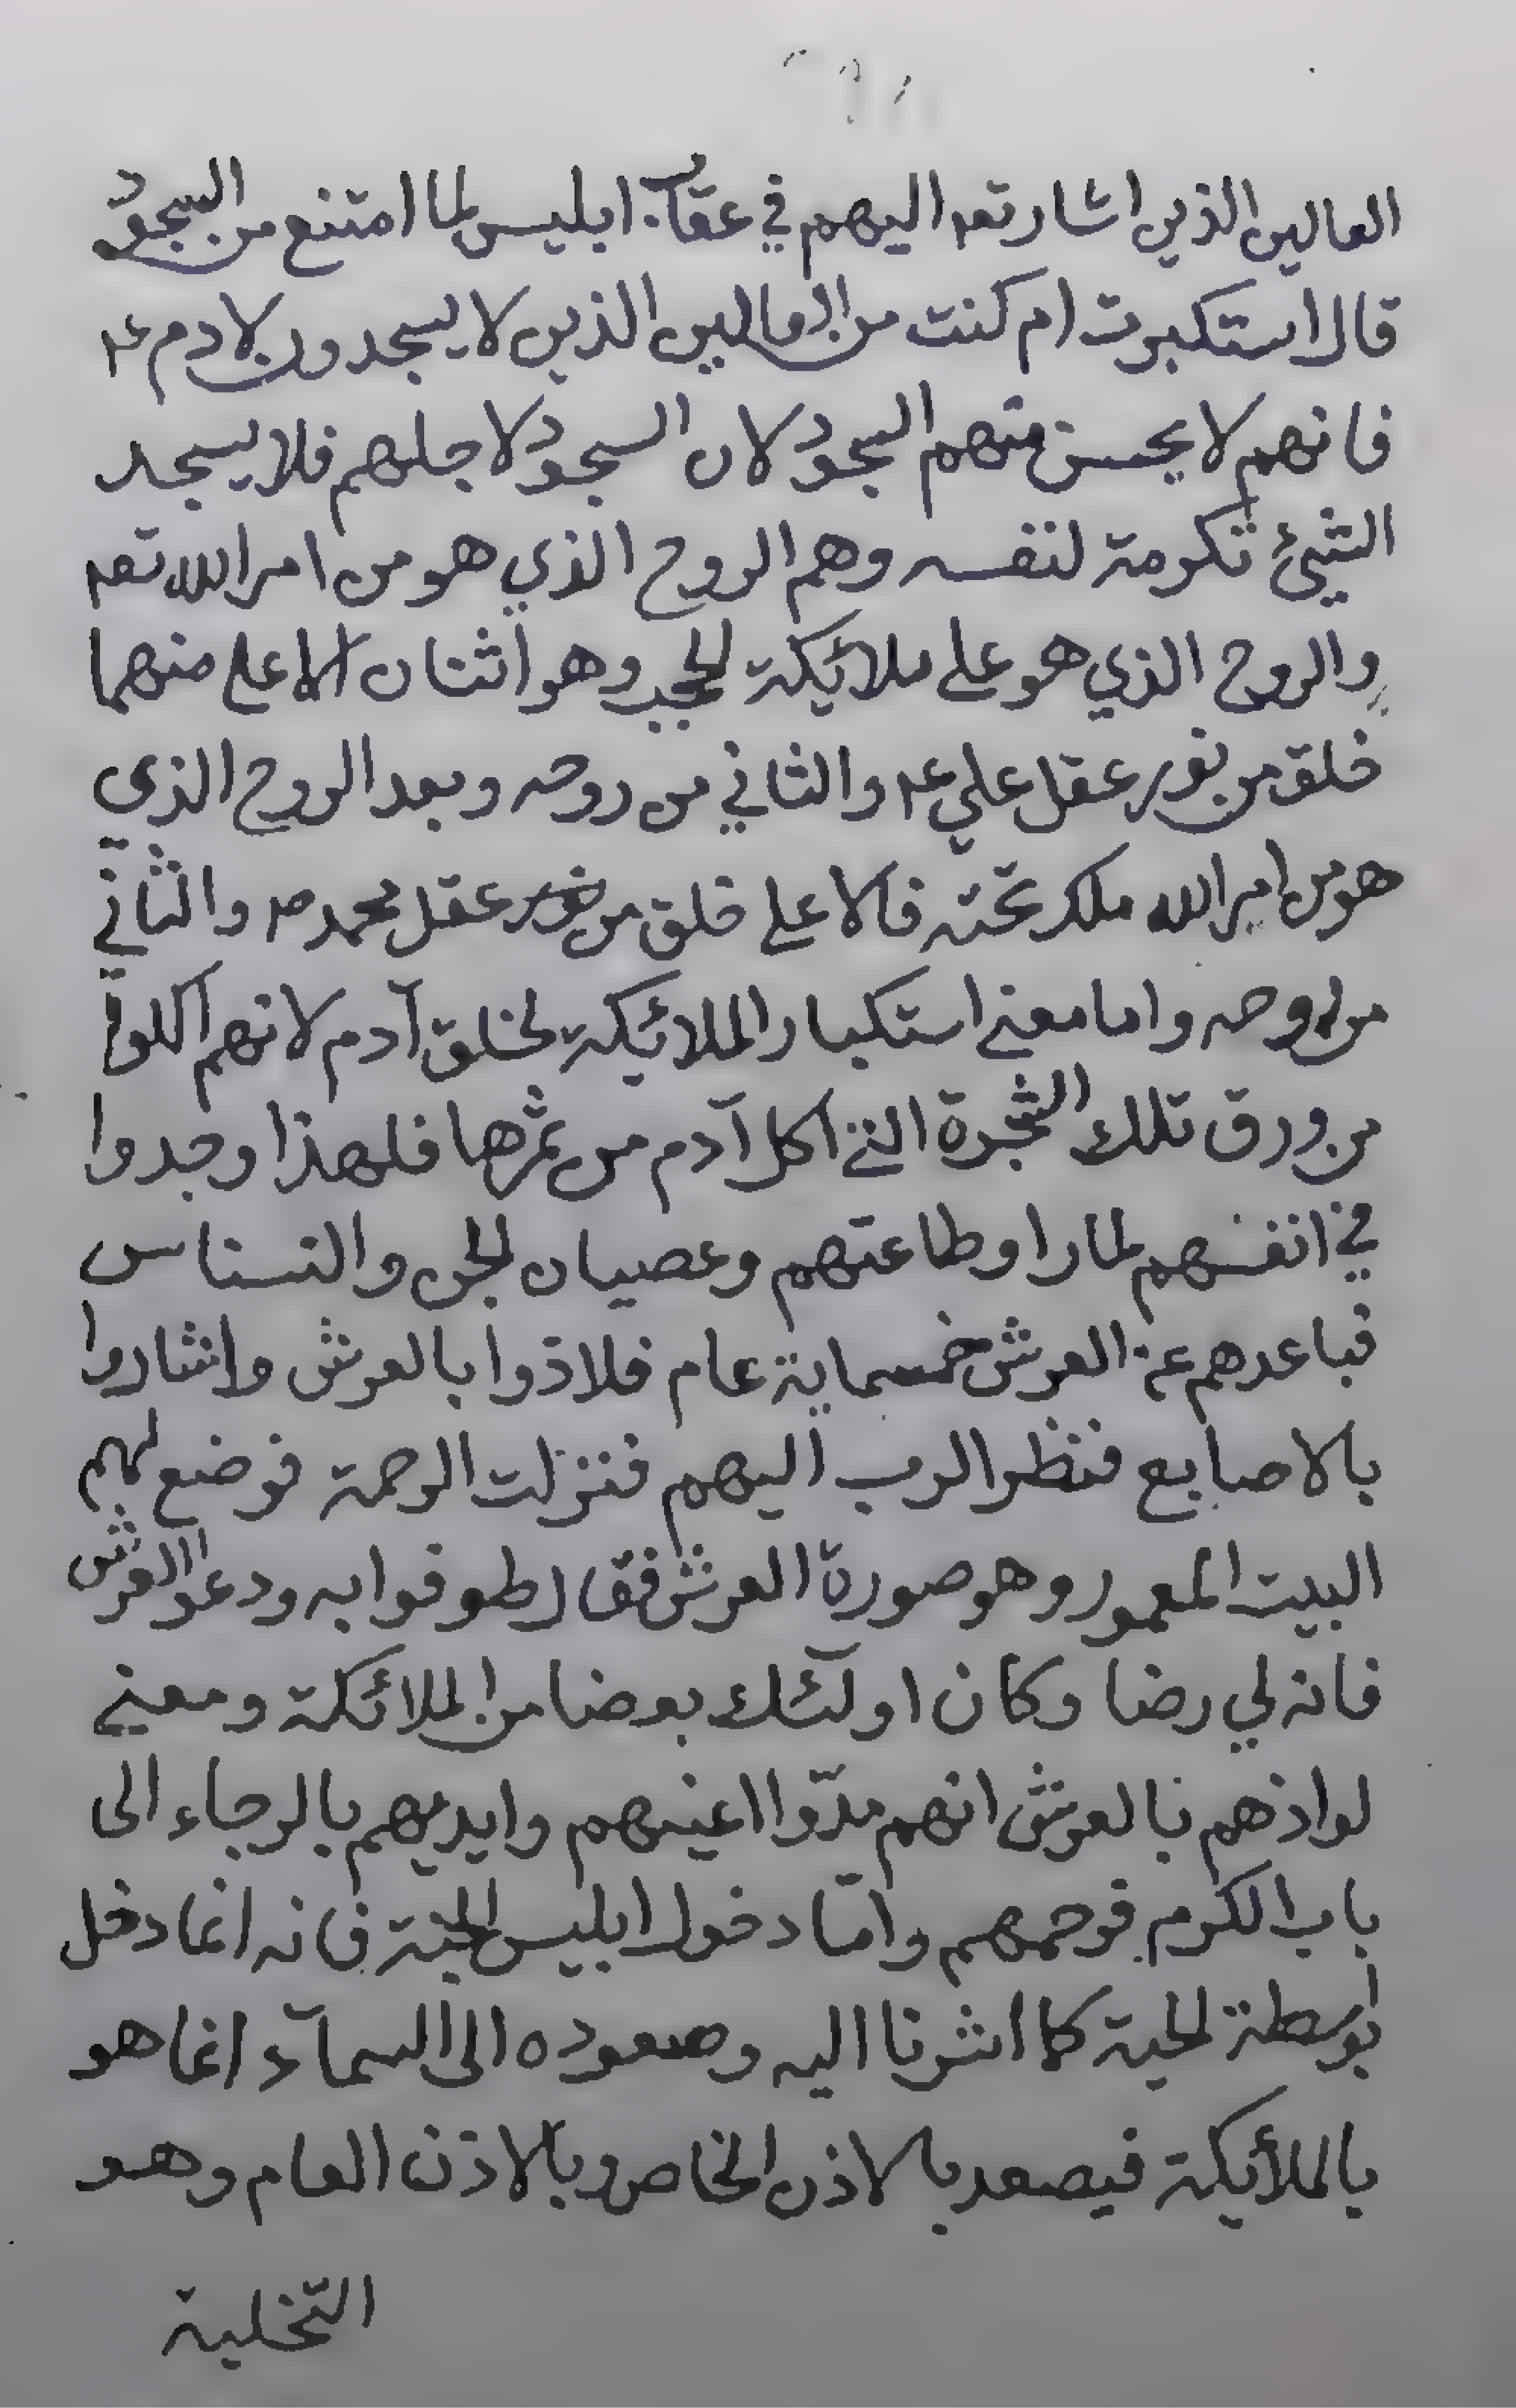 العالين الذين اشار تعه اليهم في عقاب ابليس لما امتنع من السجود
قال استكبرت ام كنت من العالين الذين لا يسجدون لادم عه
فانهم لا يحسن منهم السجود لان السجود لاجلهم فلا يسجد
الشيئ تكرمة لنفسه وهم الروح الذي هو من امر الله تعه
والروح الذي هو على ملائيكة الحجب وهو اثنان الاعلى منهما
خلق من نور عقل علي عه والثاني من روحه وبعد الروح الذي
هو من امر الله ملكر تحته فالاعلى خلق من نور عقل محمد ص والثاني
من روحه واما معنى استكبار الملائيكة لخلق آدم لانهم اكلوا
من ورق تلك الشجرة التي اكل آدم من ثمرها فلهذا وجدوا
في انفسهم لما راوا طاعتهم وعصيان الجن والنسناس
فباعدهم عن العرش خمسماية عام فلاذوا بالعرش واشاروا
بالاصابع فنظر الرب اليهم فنزلت الرحمة فوضع لهم
البيت المعمور وهو صورة العرش فقال طوفوا به ودعوا العرش
فانه لي رضا وكان اولئك بعضا من الملائكة ومعنى
لواذهم بالعرش انهم مدّوا اعينهم وايديهم بالرجاء الى
باب الكرم فرحمهم وامّا دخول ابليس الجنة فانه انما دخل
بوسطة الحية كما اشرنا اليه وصعوده الى السمآء انما هو
بالملأيكة فيصعد بالاذن الخاص وبالاذن العام وهو
التخلية